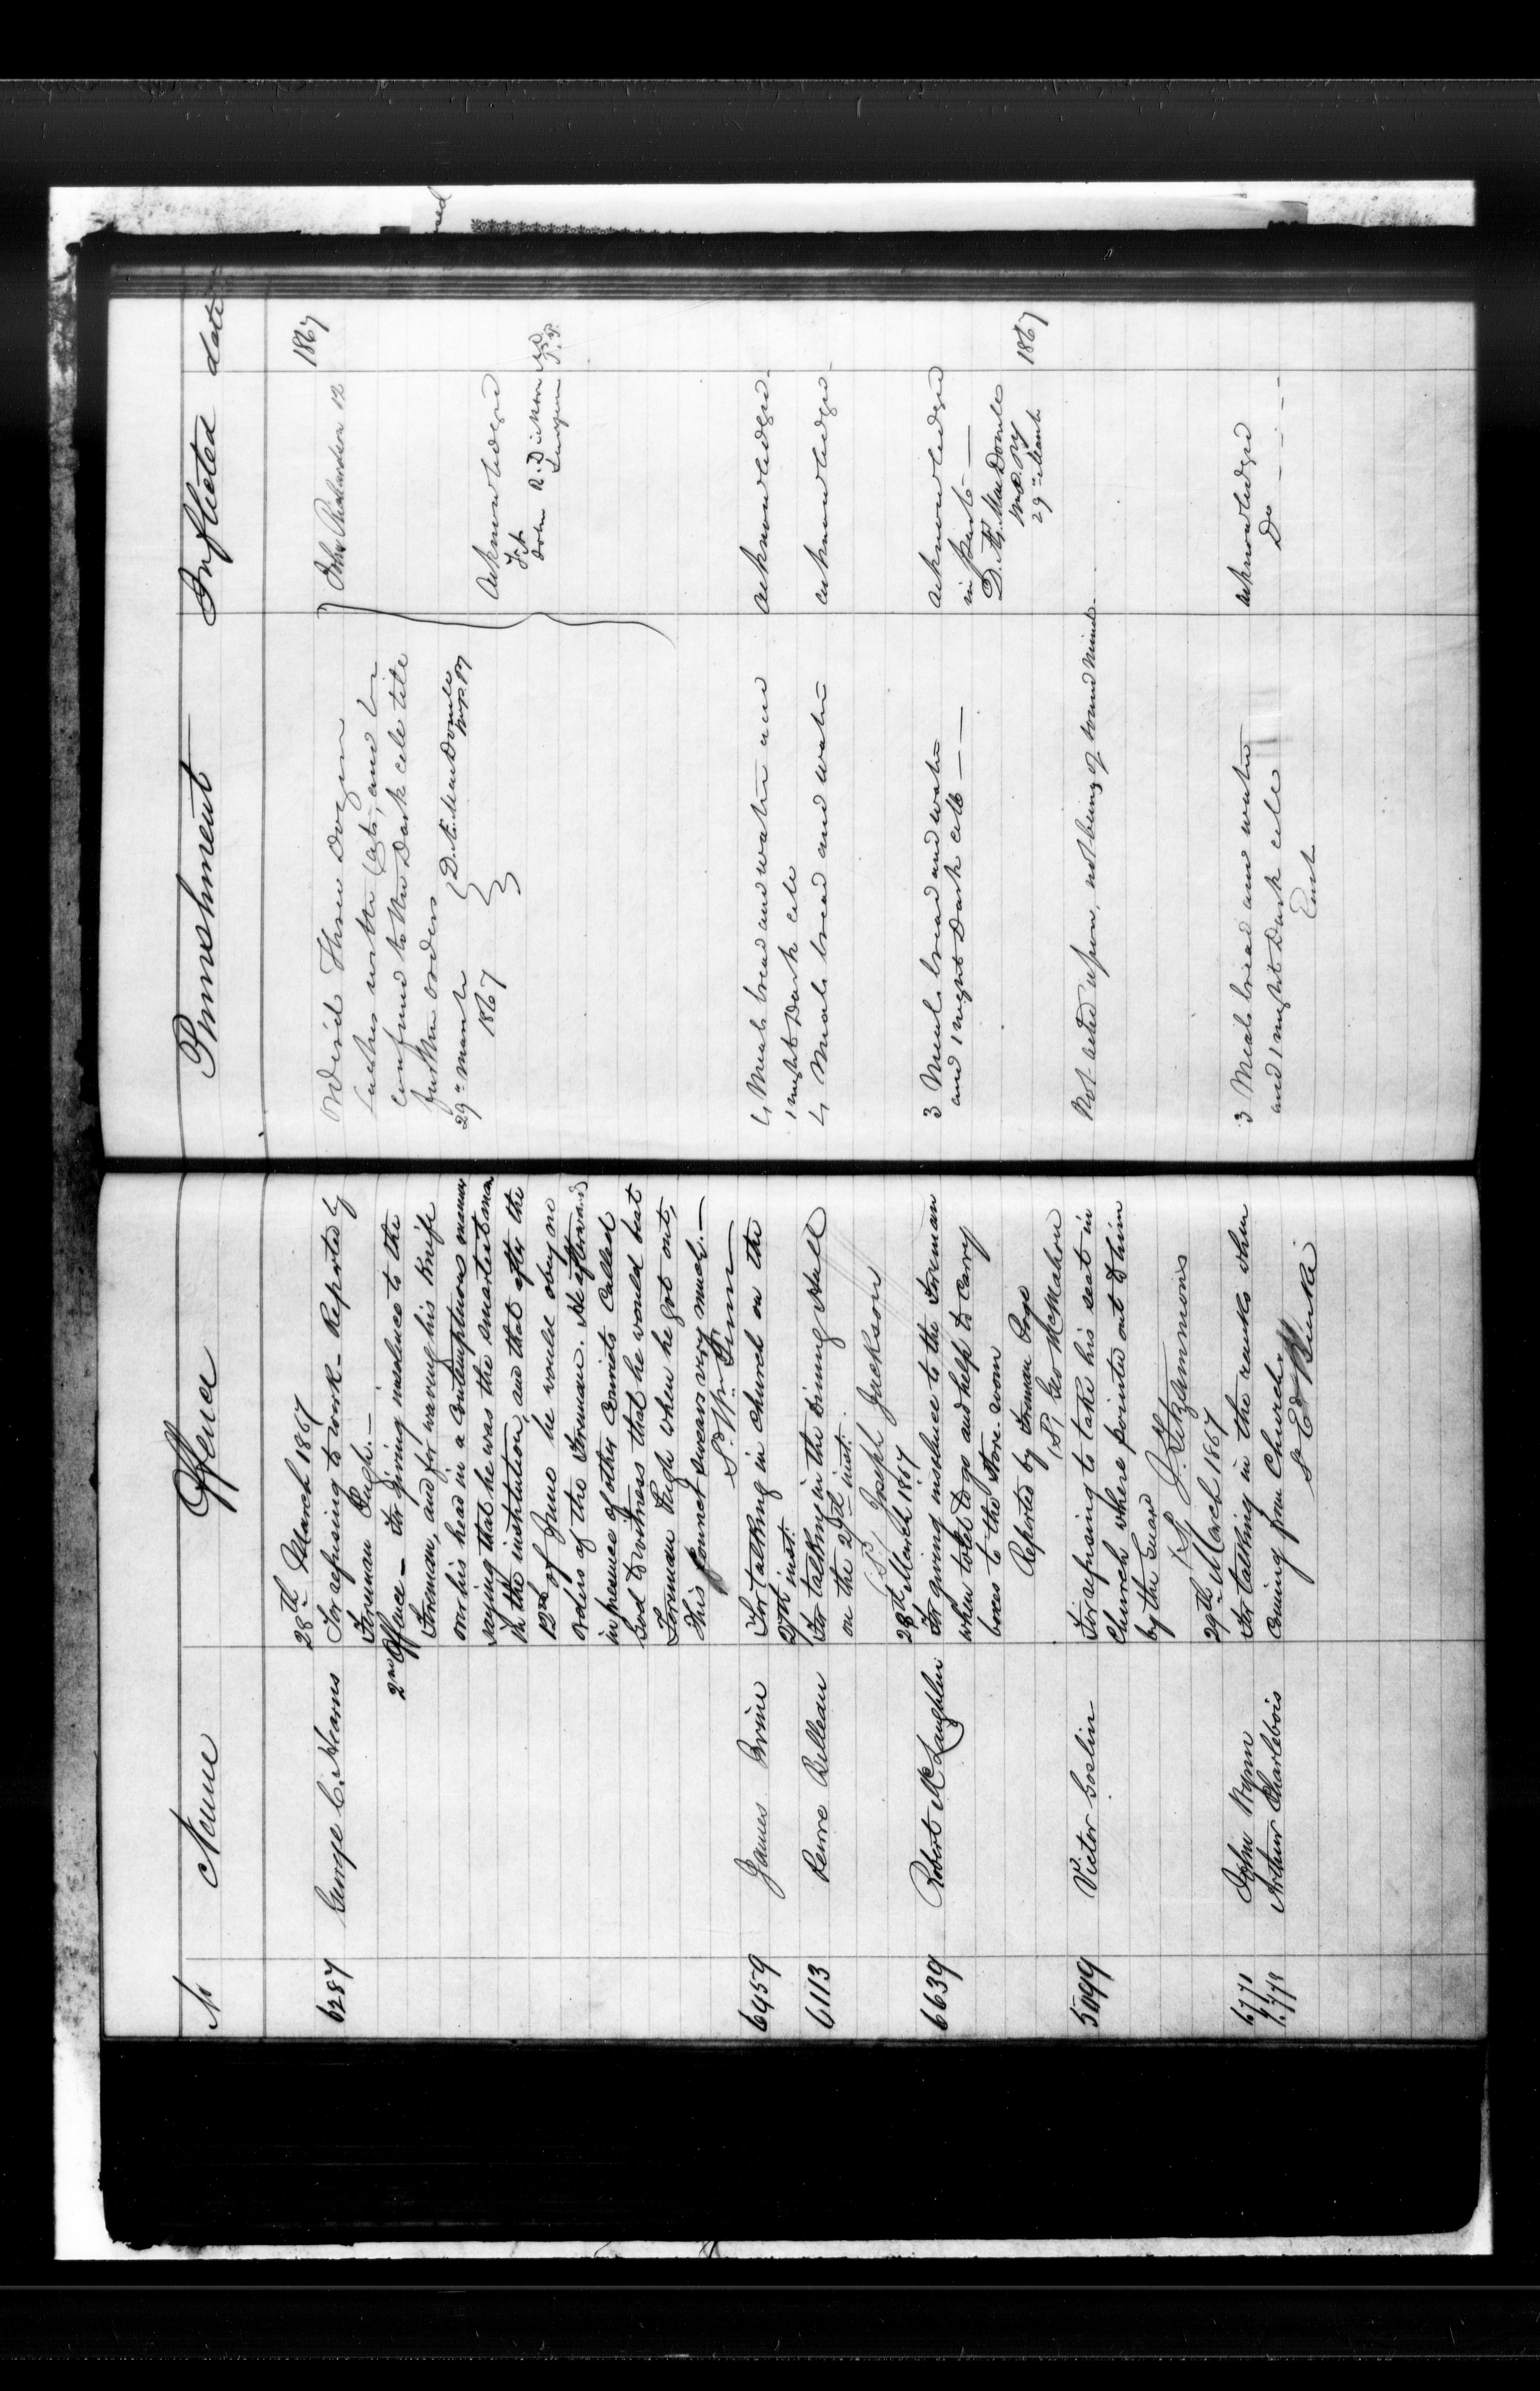 No Name Offence Punishment Inflicted date
28th March 1867 1867
6287 George C. Hearns For refusing to work - Reported by Ordered Three Dozen John Richardson 12
Foreman Pugh. - lashes with Cats, and be
2nd Offence - For giving insolence to the confined to the Dark cell till
Foreman, and for waving his knife further orders
over his head in a contemptuous manner 29th March D. Æ. MacDonell
saying that he was the smartest man 1867 W.P.P. Acknowledged
in the institution, and that after the Fit
12th of June he would obey no John R. Dickson M.D.
orders of the Foreman. He afterwards Surgeon P.P.
in presence of other convicts called
God to witness that he would beat
Foreman Pugh when he got out,
This convict swears very much. -
S. Wm.
6459 James Brine For talking in Church on the 4 Meals bread and water and acknowledged
27th inst. 1 night Dark cell
6113 Pierre Belleau For talking in the Dining Hall 4 Meals bread and water acknowledged
on the 27th inst.
(S) Joseph Jackson
28th March 1867
6639 Robert McLaughlin For giving insolence to the Foreman 3 Meals bread and water acknowledged
when told to go and help to carry and 1 night Dark cell in part -
boxes to the store-room D. Æ. MacDonell
Reported by Foreman W.P.P.
(S) Geo McMahon 29th March 1867
5099 Victor Goslin For refusing to take his seat in Not acted upon, not being of sound Mind.
Church where pointed out to him
by the Guard
(S) J. Fitzsimmons
29th March 1867
6771 John Flynn For talking in the ranks when 3 Meals bread and water acknowledged
Arthur Charlebois coming from Church. and 1 night Dark cell Do
Each